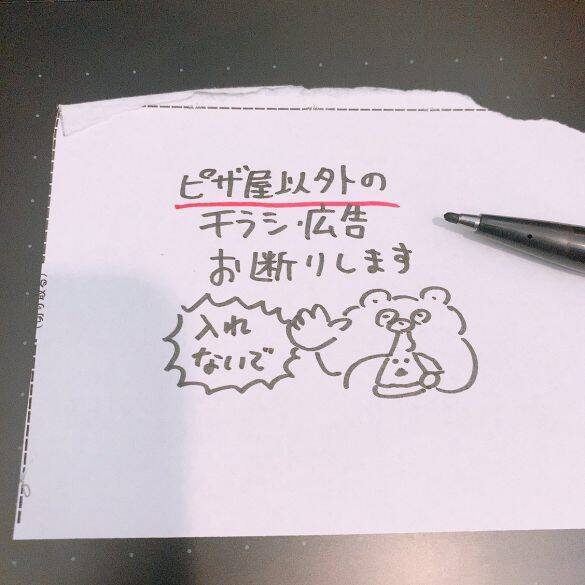 ピザ屋以外の
チラシ・広告
お断りします
入れ
ないで